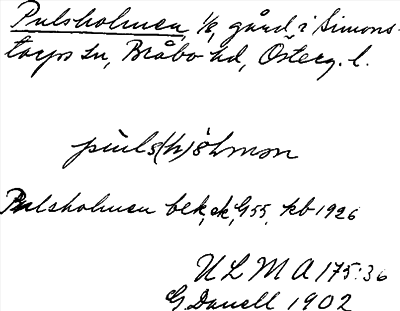 Pulsholmen, 1/8, gård i Simons-
torps sn, Bråbo hd, Österg. l.
pu̇ls(h)ȯlmȯn
Pulsholmen bek, ek, G55, kb 1926
ULMA 175:36
G Danell 1902